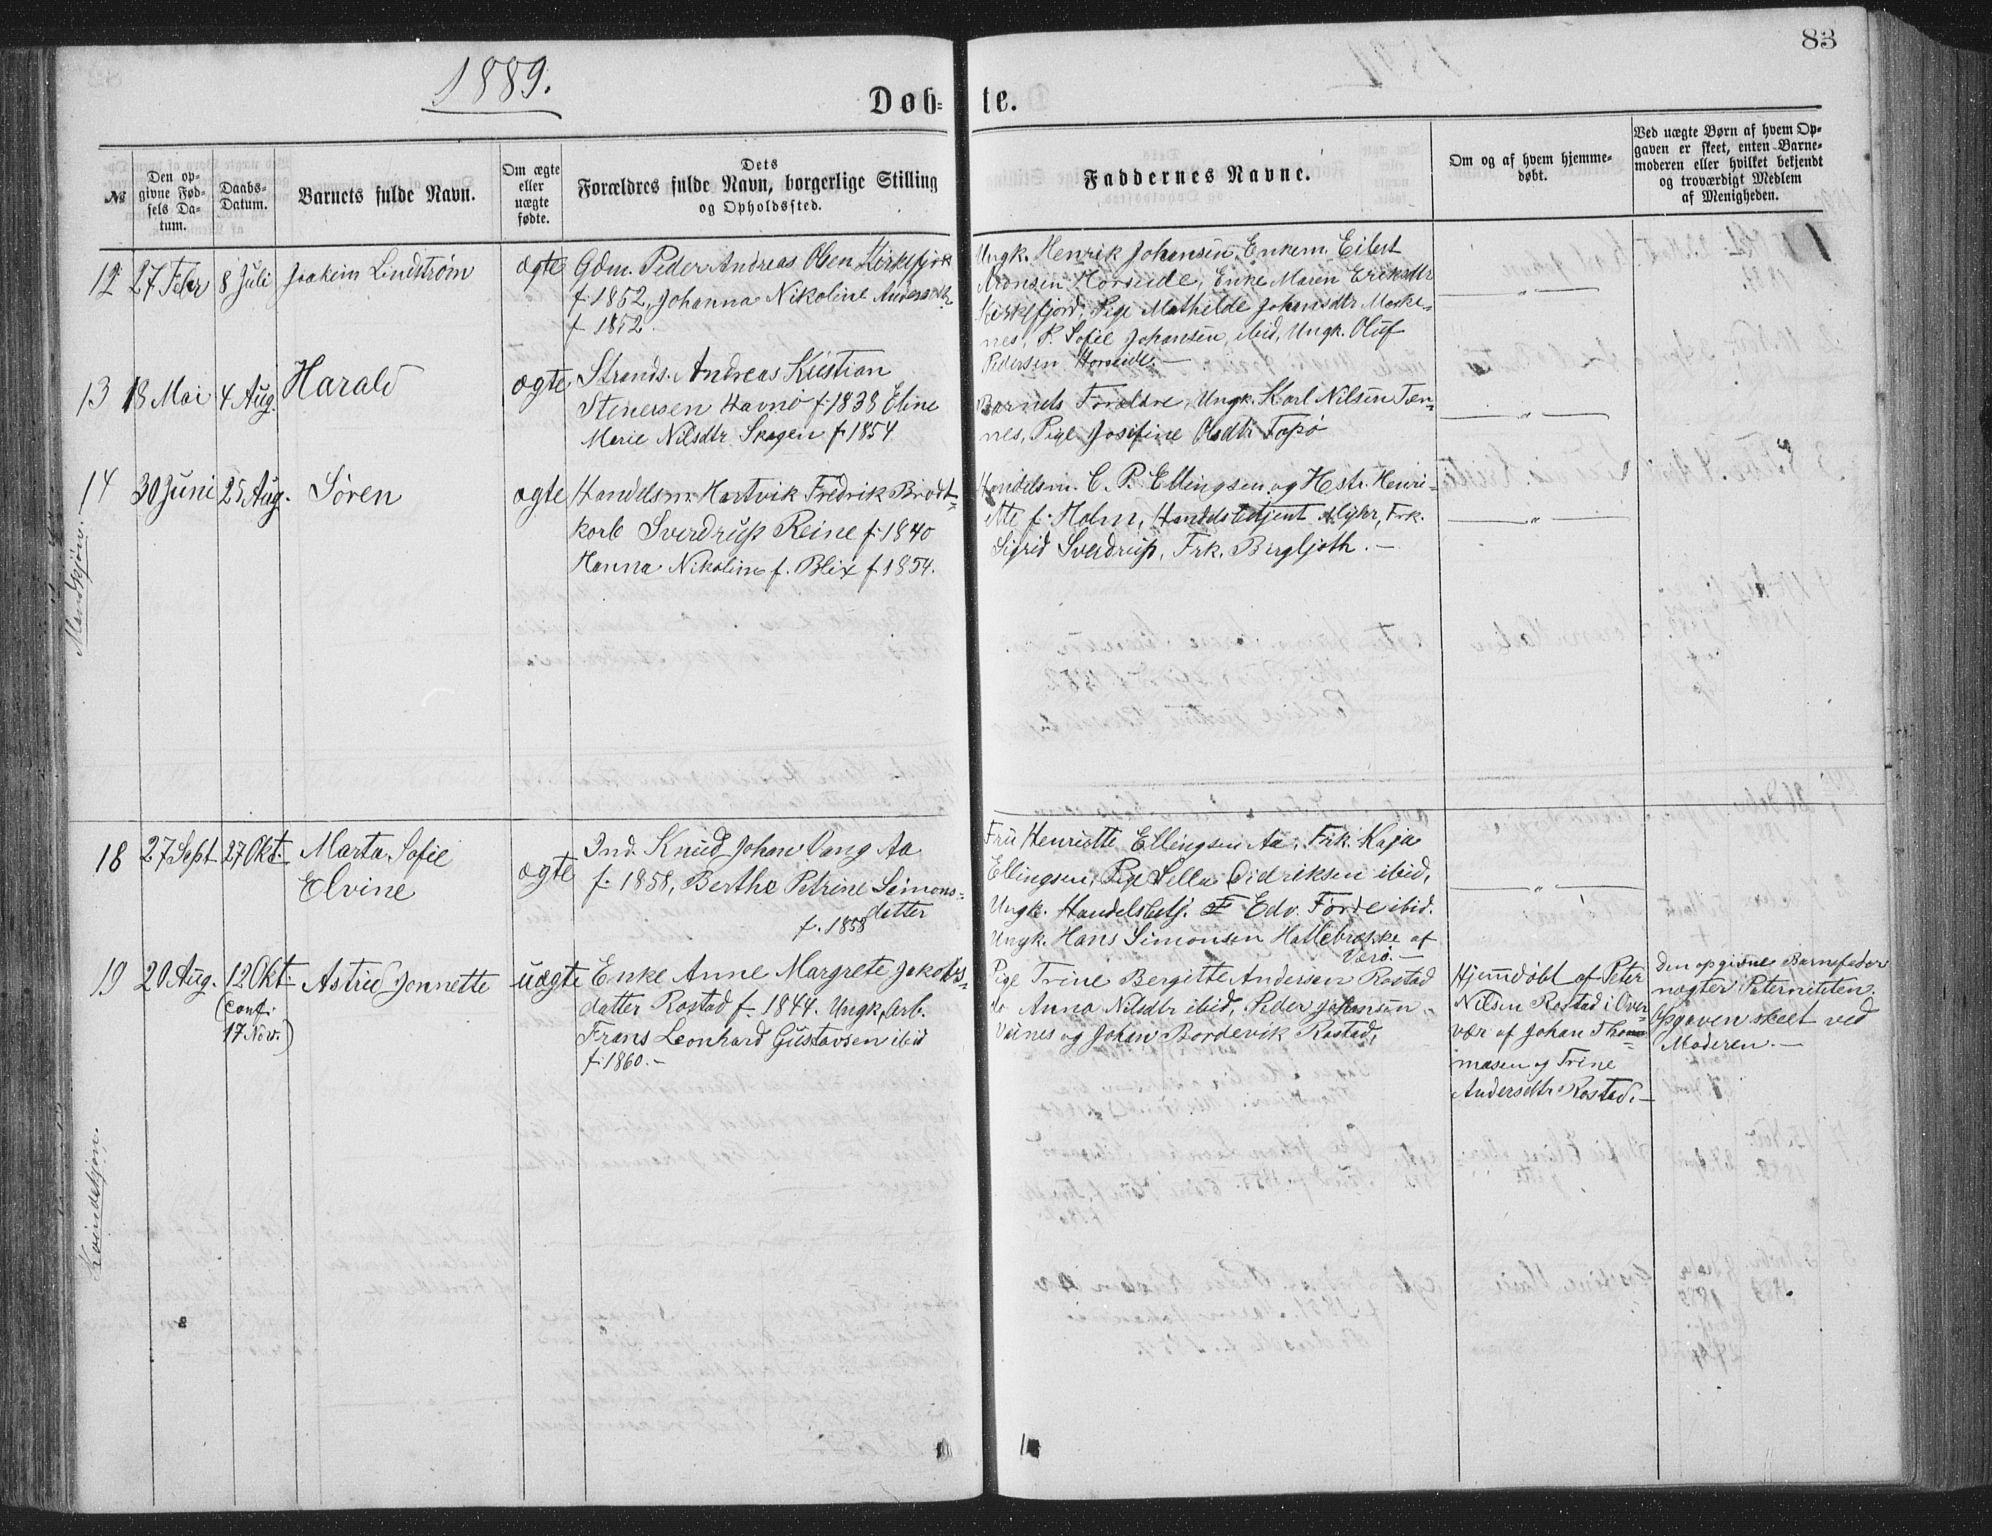 1889.
83
Døb-
te.
№
Den op-
givne Fød-
sels Da-
tum.
Daabs-
Datum.
Barnets fulde Navn.
Om ægte
eller
uægte
fødte.
Dets
Forældres fulde Navn, borgerlige Stilling
og Opholdssted.
Faddernes Navne.
Om og af hvem hjemme-
døbt.
Ved uægte Børn af hvem Op-
gaven er skeet, enten Barne-
moderen eller hvilket bekjendt
og troværdigt Medlem
af Menigheden.
Mandkjøn.
12 27 Febr 8 Juli Joakim Lindstrøm ægte
Gdm. Peder Andreas Olsen Kirkefjord
f. 1852, Johanna Nikoline Andersdtr
f. 1852.
Ungk. Henrik Johansen, Enkem. Eilert
Aronsen Horseide, Enke Maren Eriksdtr
Kirkefjord, Pige Mathilde Johansdtr Moske-
nes, P. Sofie Johansen, ibid, Ungk. Oluf
Pedersen Horseide. —
— „ —
13 18 Mai 4 Aug. Harald ægte
Strands. Andreas Kristian
Stenersen Havnø f. 1838 Eline
Marie Nilsdtr Skagen f. 1854
Barnets Forældre, Ungk. Karl Nilsen Ten-
nes, Pige Josefine Olsdtr Topø
— „ —
14 30 Juni 25 Aug. Søren ægte
Handelsm. Hartvik Fredrik Brodt-
korb Sverdrup Reine f. 1840
Hanna Nikoline f. Blix f. 1854.
Handelsm. C. P. Ellingsen og Hstr. Henri-
ette f. Holm, Handelsbetjent Myhr, Frk.
Sigrid Sverdrup, Frk. Bergljoth. —
— „ —
Kvindekjøn.
18 27 Sept. 27 Okt. Marta Sofie
Elvine
ægte
Ind. Knud Johan Vang Aa
f. 1858, Berthe Petrine Simons-
datter
f. 1858
Fru Henriette Ellingsen Aa, Frk. Kaja
Ellingsen, Pige Sella Didriksen ibid,
Ungk. Handelsbetj. Edv. Førde ibid.
Ungk. Hans Simonsen Hattebrække af
Værø. —
— „ —
19 20 Aug. 12 Okt.
(conf.
17 Nov.)
Astrid Jonnette uægte
Enke Anne Margrete Jakobs-
datter Rostad f. 1844. Ungk, Arb.
Frans Leonhard Gustavsen ibid
f. 1860. —
Pige Trine Bergitte Andersen Rostad
do Anna Nilsdtr ibid, Peder Johansen
Veines og Johan Bordevik Rostad,
Hjemdøbt af Peter
Nilsen Rostad i Over-
vær af Johan Thom-
masen og Trine
Andersdtr Rostad. —
Den opgivne Barnefader
nægter Paterniteten.
Opgaven skeet ved
Moderen. —